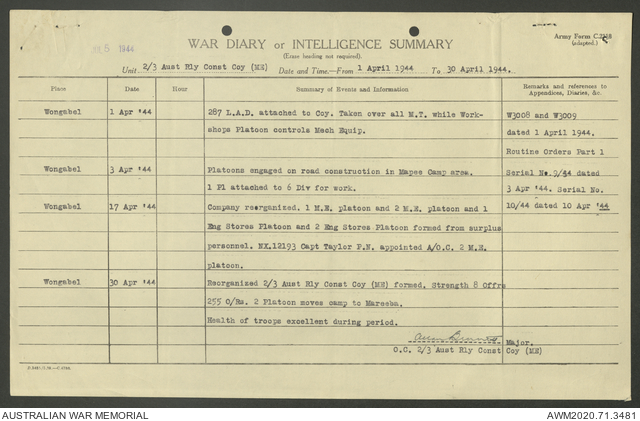 5 1944
WAR DIARY or INTELLIGENCE SUMMARY
(Erase heading not required).
Army Form C.2118
(adapted.)
Unit 2/3 Aust Rly Const Coy (ME) Date and Time.—From 1 April 1944 To 30 April 1944.
Place Date Hour Summary of Events and Information Remarks and references to
Appendices, Diaries, &c.
Wongabel 1 Apr '44 287 L.A.D. attached to Coy. Taken over all M.T. while Work- W3008 and W3009
shops Platoon controls Mech Equip. dated 1 April 1944.
Routine Orders Part 1
Wongabel 3 Apr '44 Platoons engaged on road construction in Mapee Camp area. Serial No. 9/44 dated
1 Pl attached to 6 Div for work. 3 Apr '44. Serial No.
Wongabel 17 Apr '44 Company reorganized. 1 M.E. platoon and 2 M.E. platoon and 1 10/44 dated 10 Apr '44
Eng Stores Platoon and 2 Eng Stores Platoon formed from surplus
personnel. NX.12193 Capt Taylor P.N. appointed A/O.C. 2 M.E.
platoon.
Wongabel 30 Apr '44 Reorganized 2/3 Aust Rly Const Coy (ME) formed. Strength 8 Offrs
255 O/Rs. 2 Platoon moves camp to Mareeba.
Health of troops excellent during period.
Major.
O.C. 2/3 Aust Rly Const Coy (ME)
AUSTRALIAN WAR MEMORIAL AWM2020.71.3481